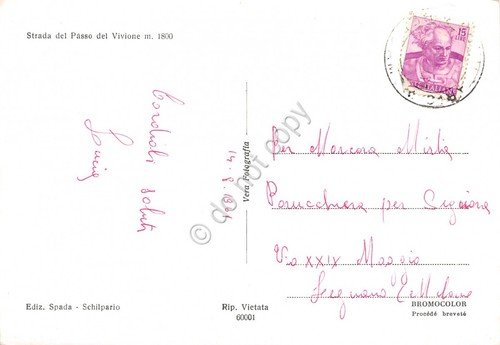 Strada del Passo del Vivione m. 1800
15
LIRE
Cordiali saluti
Lucia
Vera Fotografia
do not copy
Per Marcora Mistia
Parucchiera per Signora
Via XXIX Maggio
Legnano (Milano
Ediz. Spada - Schilpario
Rip. Vietata
60001
BROMOCOLOR
Procédé breveté